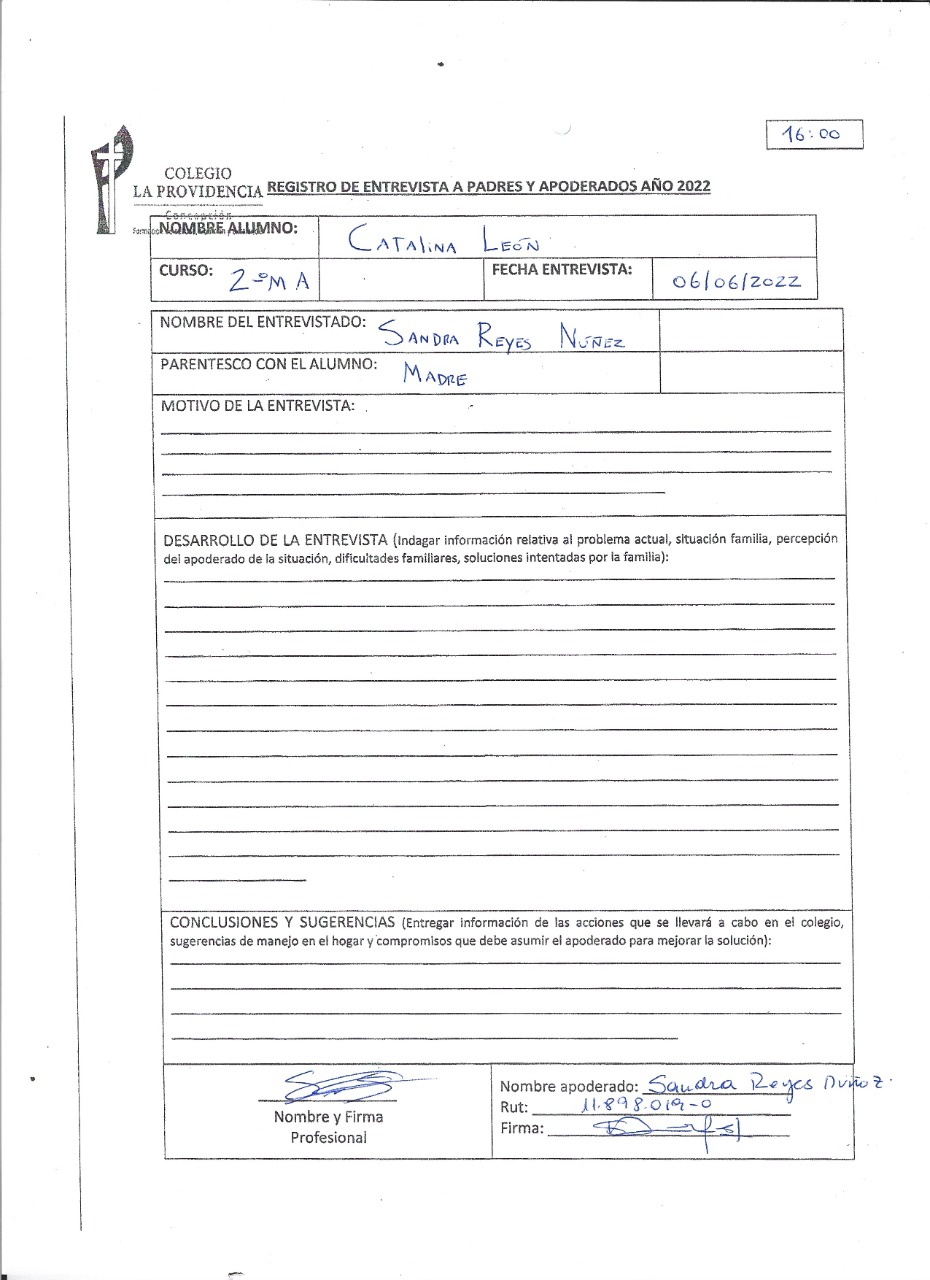 16:00
COLEGIO
LA PROVIDENCIA
REGISTRO DE ENTREVISTA A PADRES Y APODERADOS AÑO 2022
Concepción
NOMBRE ALUMNO: CATALINA LEÓN
CURSO: 2ºM A FECHA ENTREVISTA: 06/06/2022
NOMBRE DEL ENTREVISTADO: SANDRA REYES NÚÑEZ
PARENTESCO CON EL ALUMNO: MADRE
MOTIVO DE LA ENTREVISTA:
DESARROLLO DE LA ENTREVISTA (Indagar información relativa al problema actual, situación familia, percepción
del apoderado de la situación, dificultades familiares, soluciones intentadas por la familia):
CONCLUSIONES Y SUGERENCIAS (Entregar información de las acciones que se llevará a cabo en el colegio,
sugerencias de manejo en el hogar y compromisos que debe asumir el apoderado para mejorar la solución):
Nombre apoderado: Sandra Reyes Nuñoz.
Rut: 11.898.019-0
Firma:
Nombre y Firma
Profesional